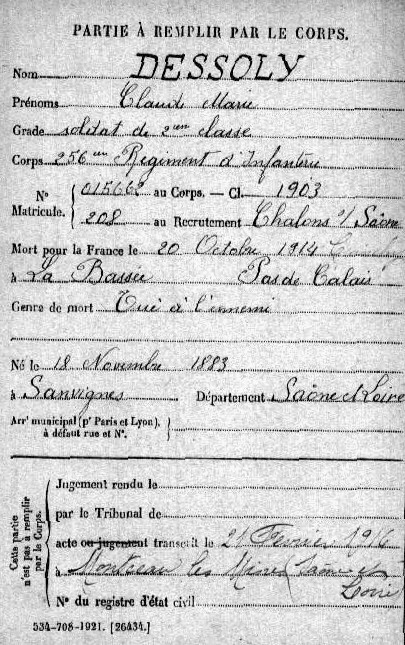 PARTIE À REMPLIR PAR LE CORPS.
Nom DESSOLY
Prénoms Claude Marie
Grade soldat de 2em classe
Corps 256em Régiment d'Infanterie
N° Matricule. { 015662 au Corps. — Cl. 1903
208 au Recrutement Chalons s/ Saône
Mort pour la France le 20 Octobre 1914
à La Bassée Pas de Calais
Genre de mort Tué à l'ennemi
Né le 18 Novembre 1883
à Sanvignes Département Saône et Loire
Arrt municipal (pr Paris et Lyon), à défaut rue et N°.
Cette partie n'est pas à remplir par le Corps.
Jugement rendu le
par le Tribunal de
acte ou jugement transcrit le 21 Février 1916
à Montceau les Mines Saône et
Loire
N° du registre d'état civil
534-708-1921. [26434.]